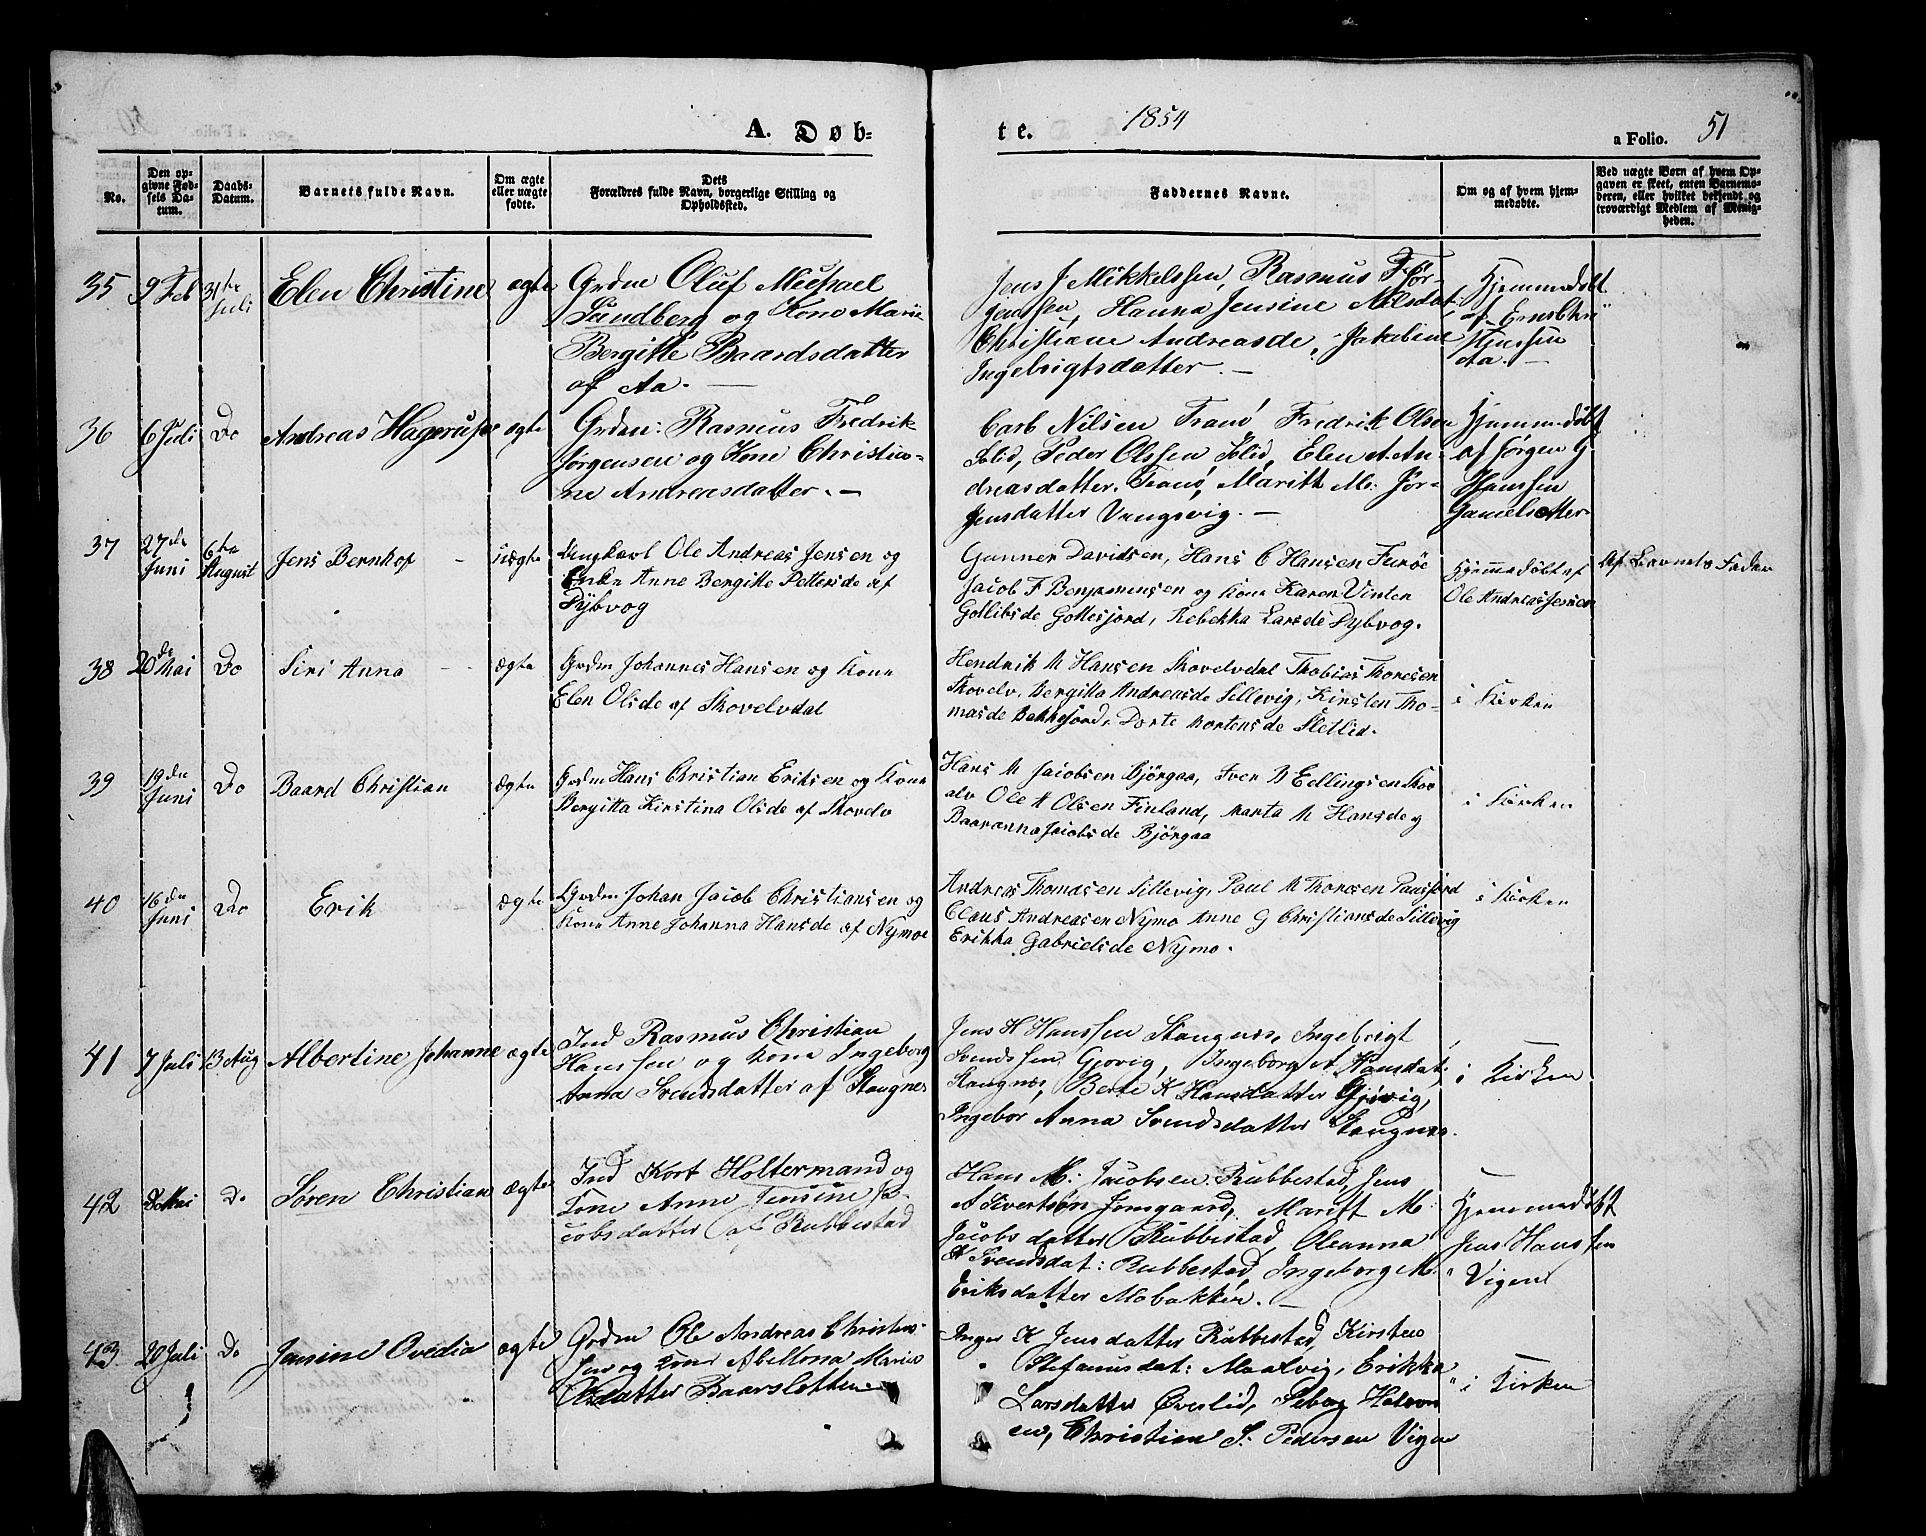 1854
A. Døb-
te.
a Folio. 51
No.
Den op-
givne Fød-
sels Da-
tum.
Daabs-
Datum.
Barnets fulde Navn.
Om ægte
eller uægte
fødte.
Dets
Forældres fulde Navn, borgerlige Stilling og
Opholdssted.
Faddernes Navne.
Om og af hvem hjem-
medøbte.
Ved uægte Børn af hvem Op-
gaven er skeet, enten Barnemo-
deren, eller hvilket bekjendt og
troværdigt Medlem af Menig-
heden.
35
9 Feb
31te
Juli
Elen Christine
ægte
Grdm Oluf Michael
Sundberg og Kone Marie
Bergitte Baardsdatter
af Aa. —
Jens J Mikkelssen, Rasmus F Jør-
genssen, Hanna Jensine Nilsdat,
Christiane Andreasde, Jakobine
Ingebrigtsdatter. —
Hjemmedøbt
af
Aa. —
36
6 Juli
Do
Andreas Hagerup
ægte
Grdm: Rasmus Fredrik
Jørgensen og Kone Christia-
ne Andreasdatter. —
Carl Nilsen Tranø, Fredrik Olsen
Solid, Peder Olssen Solid, Elen A. An-
dreasdatter. Tranø, Maritt M. Jør-
gensdatter Vangsvig. —
Hjemmedøbt
af Jørgen G.
Hanssen
37
27de
Juni
6te
August
Jens Bernhof
uægte
Ungkarl Ole Andreas Jensen og
Enke Anne Bergitte Petersde af
Dybvog
Gunner Davidsen, Hans C Hansen Furøe
Jacob F Benjaminsen og Kone Karen Vinten
Gotlibsde Gottesjord, Rebekka Larsde Dybvog.
Hjemmedøbt af
Ole Andreas Jensen
Af Barnets Fader
38
20de Mai
Do
Siri Anna
ægte
Grdm Johannes Hansen og Kone
Elen Olsde af Skovelvdal
Hendrik M Hansen Skovelvdal Thobias Thoresen
Skovelv, Bergitta Andreasde Sillevig, Kirsten Tho-
masde Bakkejord, Dorte Mortensde Sletlid.
i Kirken
39
19de
Juni
Do
Baard Christian
ægte
Grdm Hans Christian Eriksen og Kone
Bergitta Kirstina Olsde af Skovelv
Hans M Jacobsen Bjørgaa, Iver B Edlingsen Skov
elv Ole H Olsen Finland, Marta M Hansde og
Baaranna Jacobsde Bjørgaa
i Kirken
40
16de
Juni
Do
Erik
ægte
Grdm Johan Jacob Christiansen og
Kone Anne Johanna Hansde af Nymoe
Andreas Thomasen Sillevig, Paul M Thoresen Pausjord
Claus Andreasen Nymo Anne G Christiansde Sillevig
Erikka Gabrielsde Nymo.
i Kirken
41
7 Juli
13 Aug
Albertine Johanne
ægte
Ind Rasmus Christian
Hanssen og Kone Ingeborg
Anna Svendsdatter af Stangnes
Jens H Hanssen Stangnes, Ingebrigt
Svendssen Gjøvig, Ingeborg A Hansdat,
Stangnes, Berte K Hansdatter Gjøvig,
Ingebor Anna Svendsdatter Stangnes.
i Kirken
42
Mai
Do
Søren Christian
ægte
Ind Kort Holtermand og
Kone Anne Jensine Ja-
cobsdatter af Rubbestad
Hans M: Jacobsen Rubbestad, Jens
A Sivertsøn Jonsgaard, Maritt M:
Jacobsdatter Rubbestad, Oleanna
H Svendsdat: Rubbestad, Ingeborg M.
Eriksdatter Mobakken. —
Hjemmedøbt
Jens Hanssen
Vigen
43
20 Juli
Do
Jensine Ovedia
ægte
Grdm Ole Andreas Christens-
sen og Kone Abellona Marie
Olsdatter Baarsletten
Inger K Jensdatter Rubbestad, Kirsten
Stefanusdat: Maalvig, Erikka
Larsdatter Øverlid, Halvor
en, Christian S. Pedersen Vigen
i Kirken